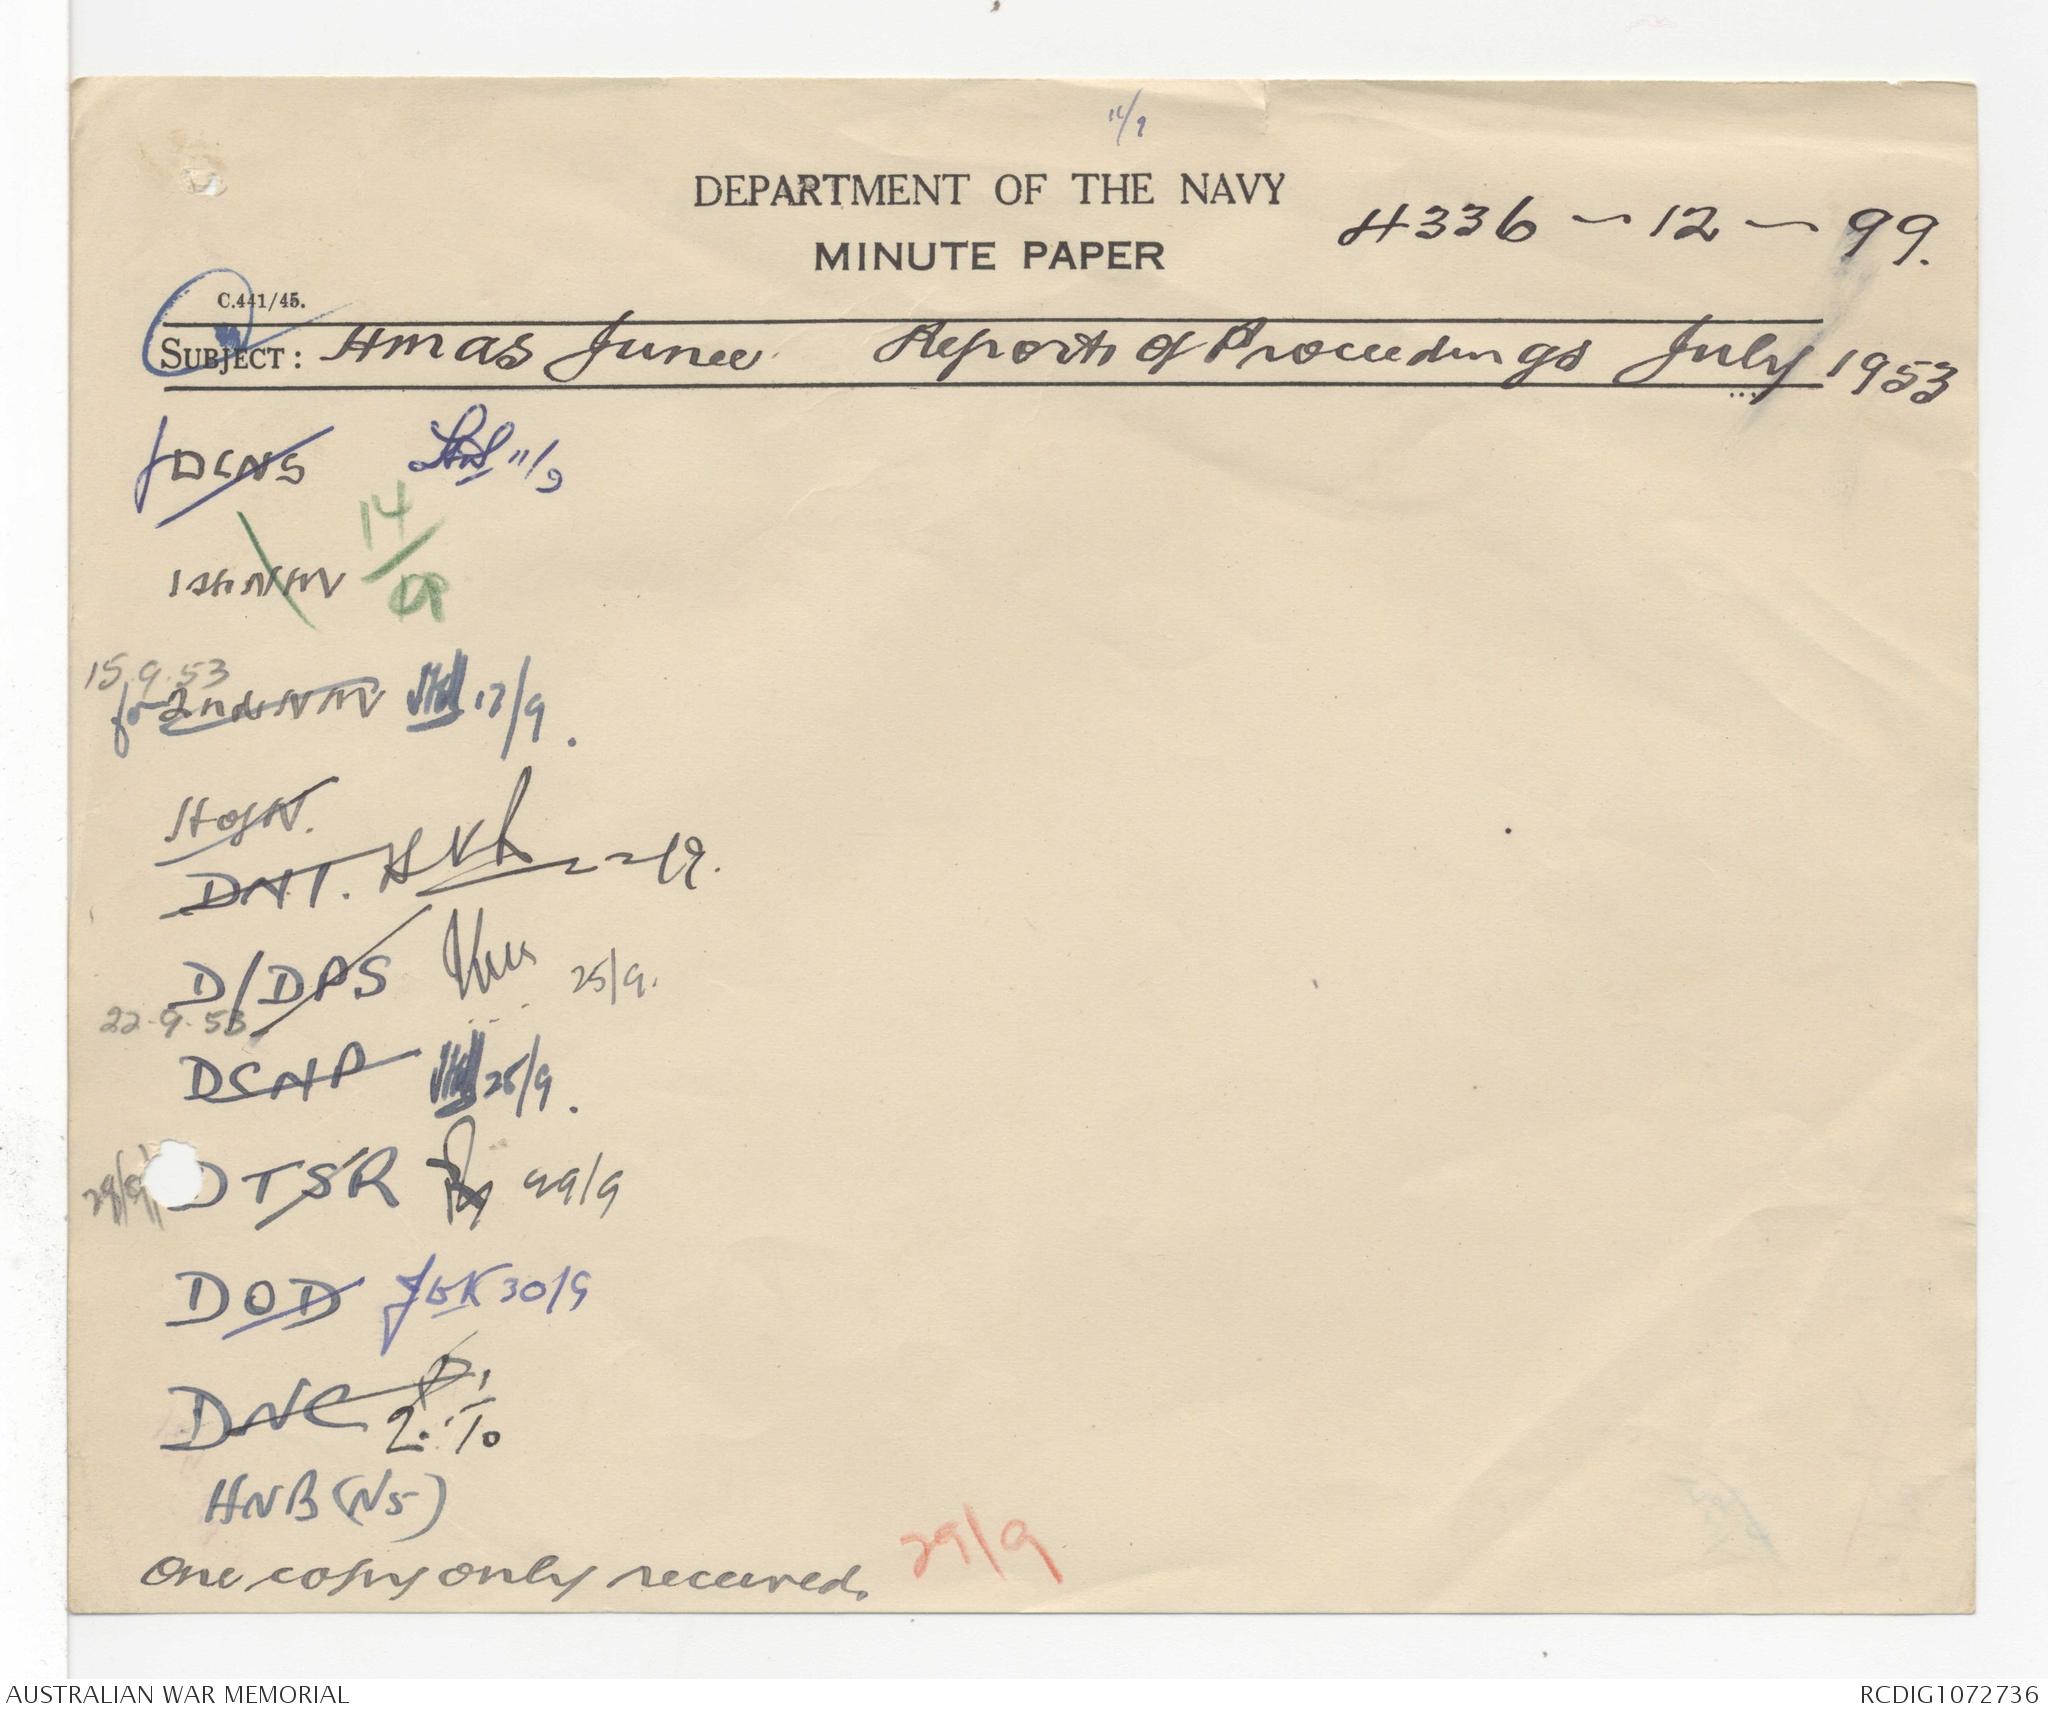 11/9
DEPARTMENT OF THE NAVY
MINUTE PAPER
4336 - 12 - 99.
C.441/45.
SUBJECT: HMAS Junee Reports of Proceedings July 1953
DCNS 11/9
1st NM 14/9
15.9.53
for 2nd NM 17/9.
H of N.
DNT. 22/9.
D/DPS 25/9.
22.9.53
DCNP 28/9.
29/9 DTSR 29/9
DOD 30/9
DNC 2.10
HNB (NS)
One copy only received. 29/9
AUSTRALIAN WAR MEMORIAL
RCDIG1072736